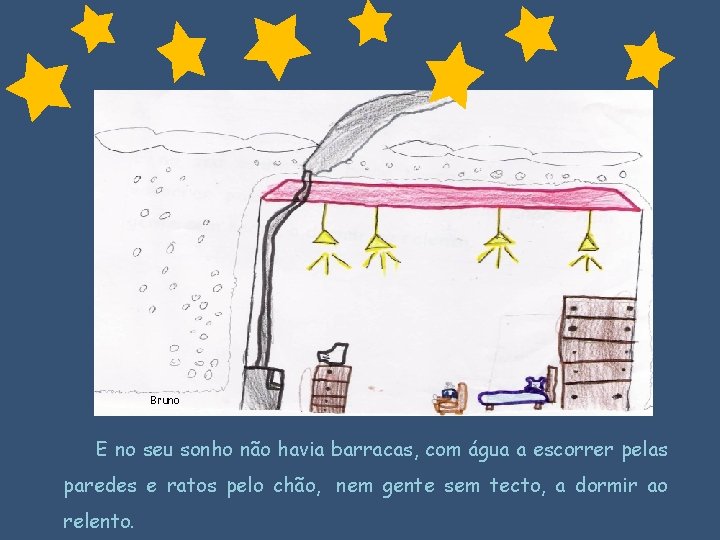 Bruno
E no seu sonho não havia barracas, com água a escorrer pelas
paredes e ratos pelo chão, nem gente sem tecto, a dormir ao
relento.